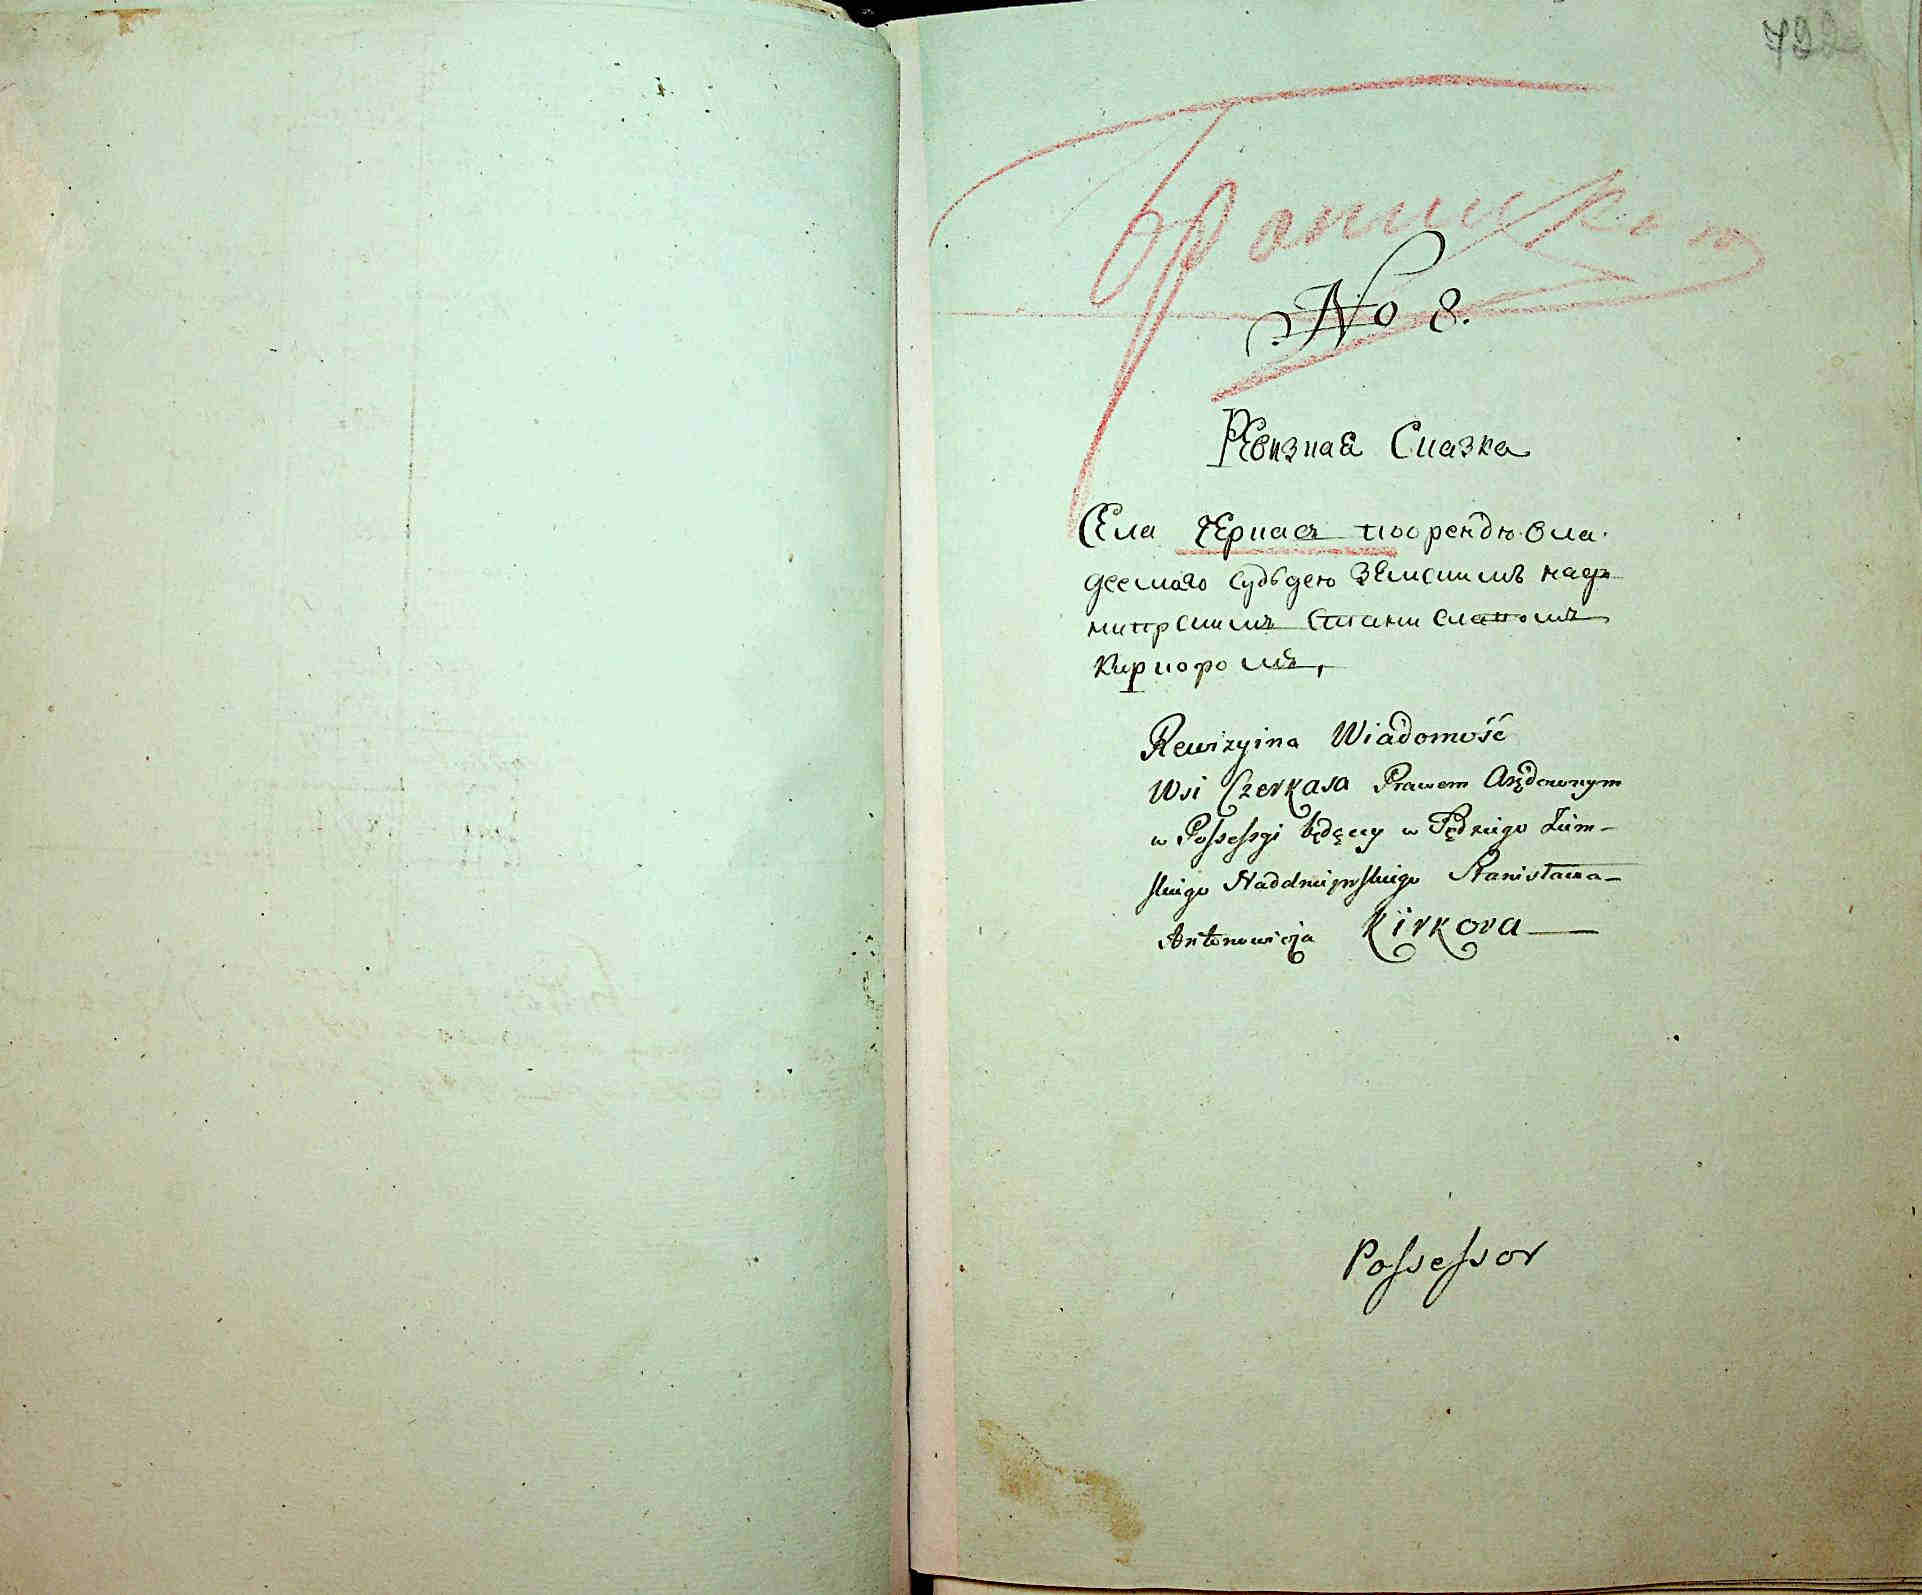 No 8.
Ревизная Сказка
Села Черкас поорендю вла-
деемого судьдею Земскимъ надъ
нипрскимъ Станиславомъ
Киркором,
Rewizyina Wiadomość
Wsi Czerkasa Prawem Arędownym
w Possessyi będącey w Sędziego Ziem-
skiego Naddnieprskiego Stanisława
Antonowicza Kirkora
Possessor